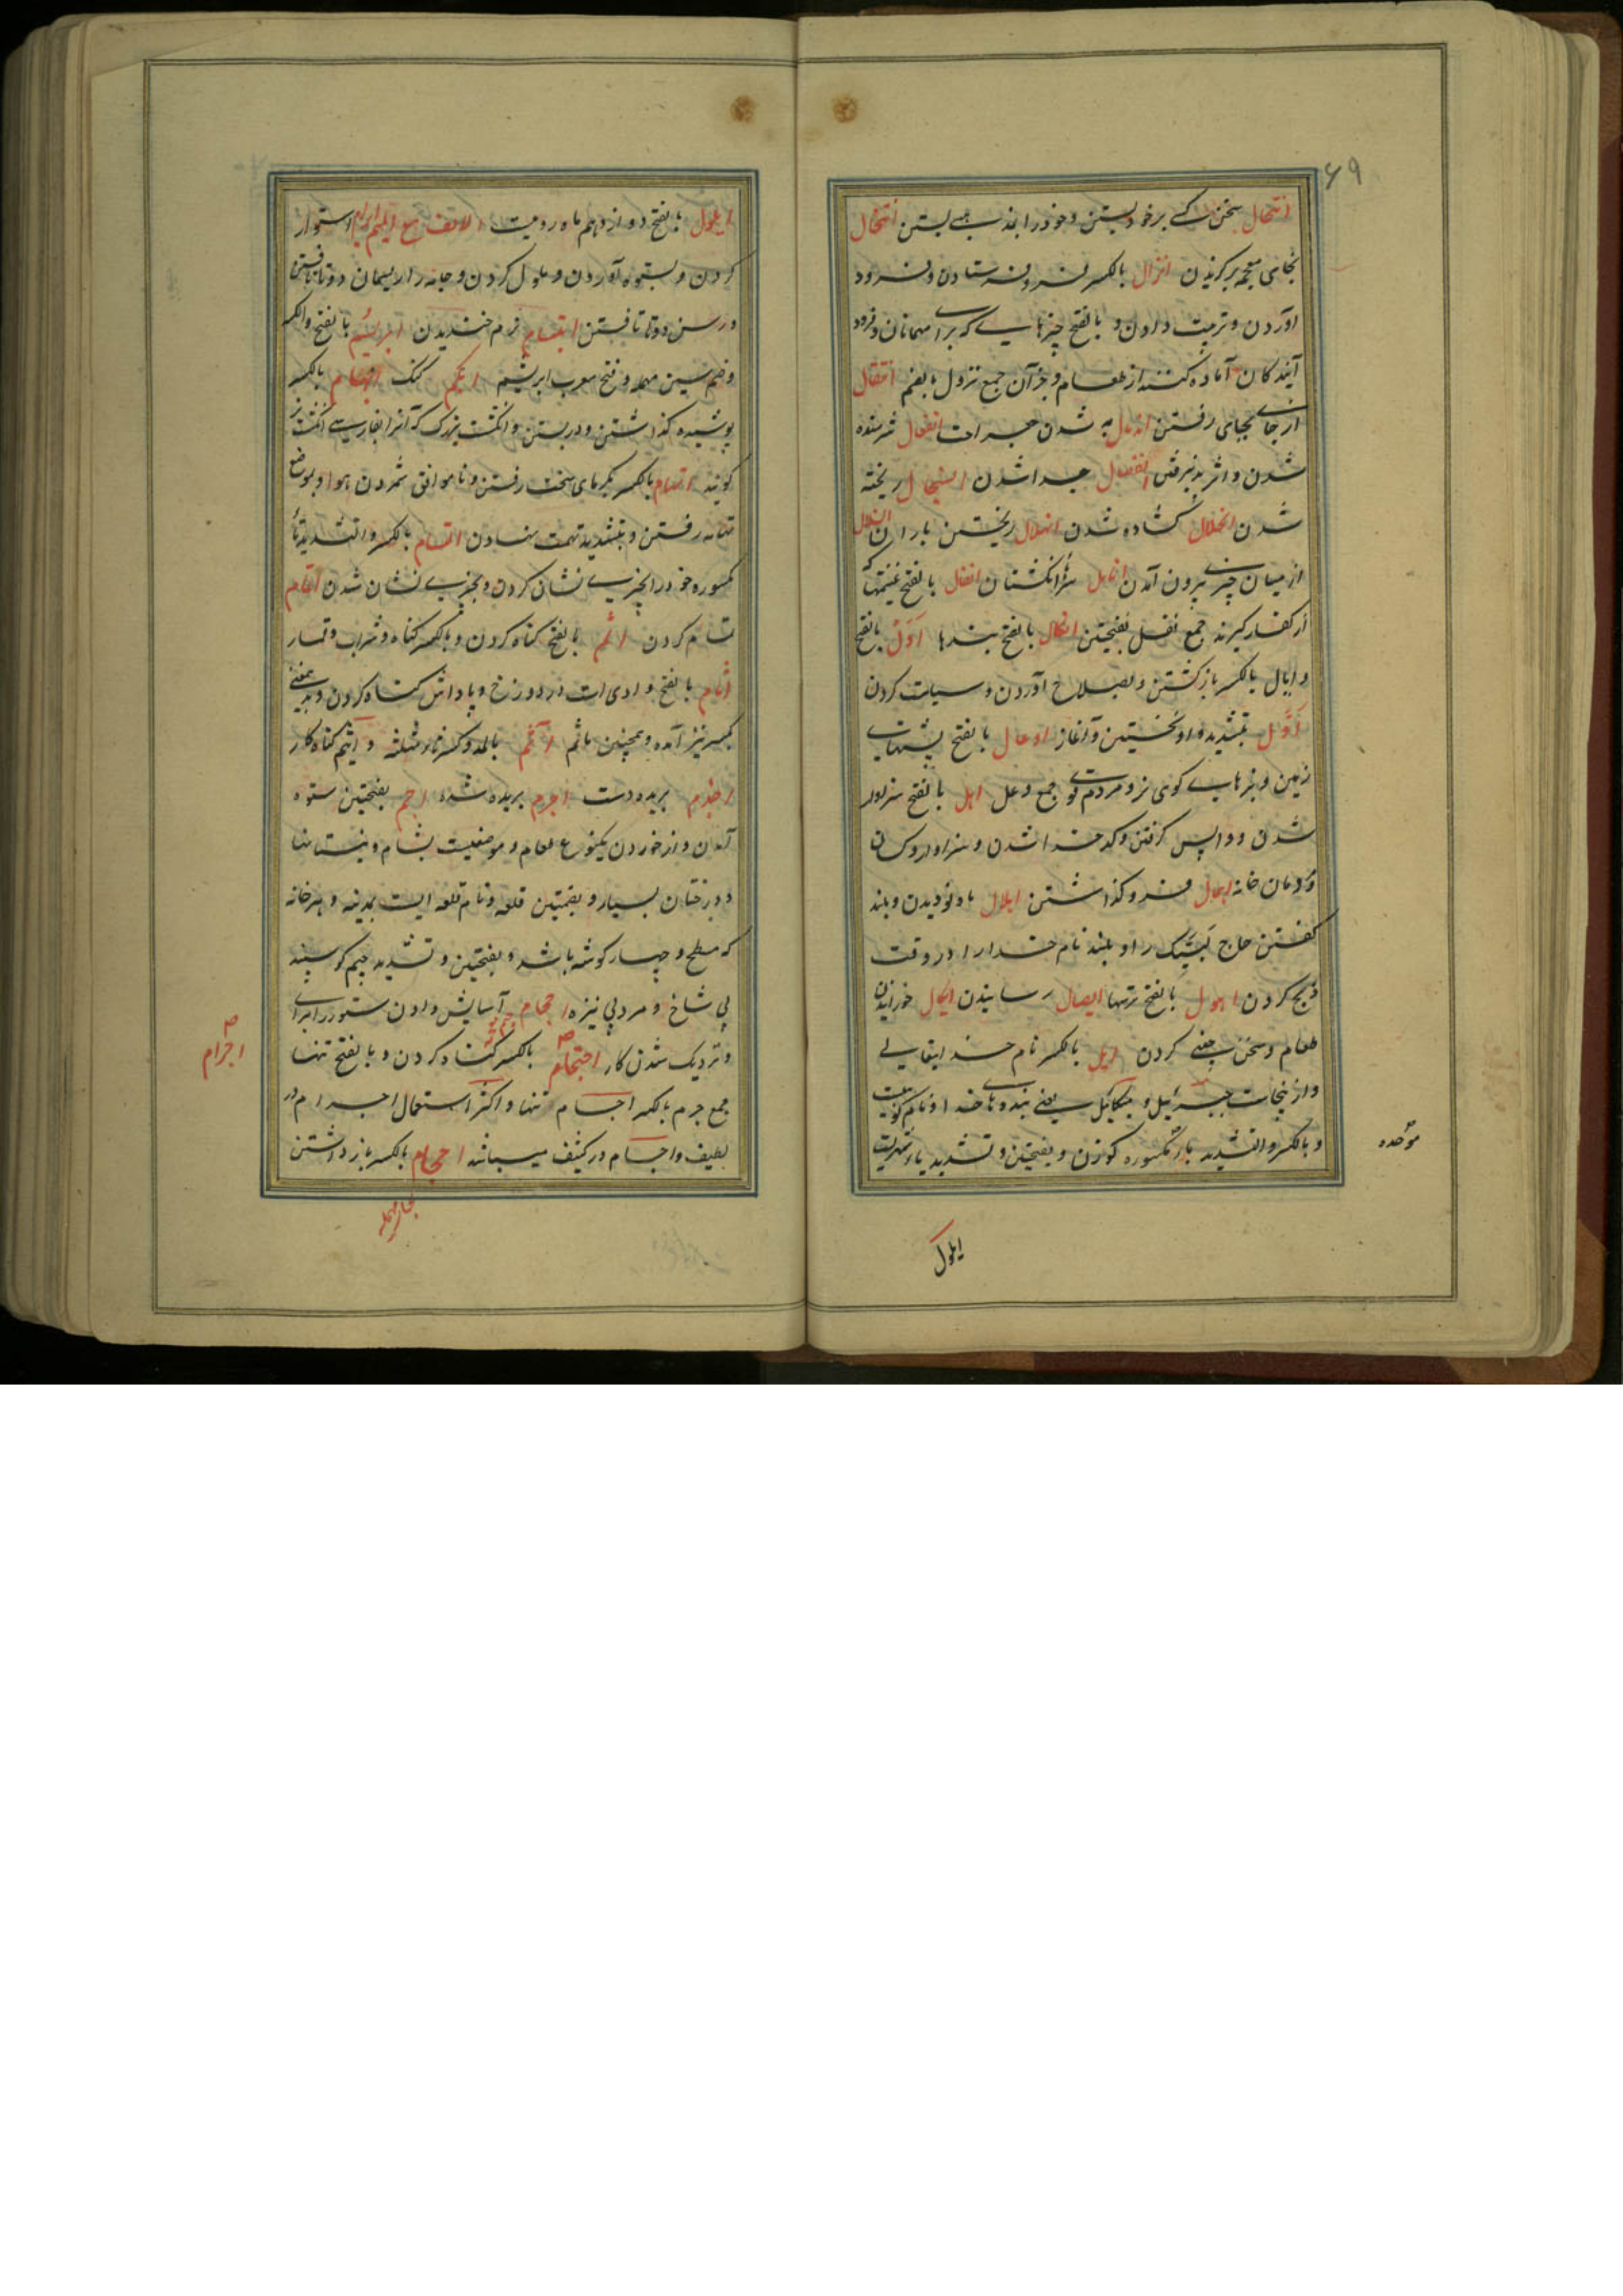 ۶۹
انتحال سخن کسے برخود بستن و خود را بمذهبے بستن انتخال
بخای معجمه برگزیدن انزال بالکسر فرو فرستادن و فرود
آوردن و تربیت دادن و بالفتح چیزهایے که برای مهمانان و فرود
آیندگان آماده کنند از طعام و جز آن جمع نزول بالضم انتقال
از جای بجای رفتن اندمال به شدن جراحت انفعال شرمنده
شدن و اثر پذیرفتن انفصال جدا شدن انسجال ریخته
شدن انحلال گشاده شدن انهلال ریختن باران انسلال
از میان چیزے بیرون آمدن انامل سر انگشتان انفال بالفتح غنیمتها که
از کفار گیرند جمع نفل بفتحتین انکال بالفتح بندها اَوْل بالفتح
و ایال بالکسر بازگشتن و بصلاح آوردن و سیاست کردن
اَوَّل بتشدید واو نخستین و آغاز اوعال بالفتح پشتهای
زمین و بزهایے کوهی نر و مردم قوی جمع وعل اهل بالفتح سزاوار
شدن و واپس گرفتن و کدخدا شدن و سزاوار و کسان
و دودمان خانه اهمال فرو گذاشتن اهلال ماه نو دیدن و بلند
گفتن حاج لبیک را و بلند نام خدا را در وقت
ذبح کردن اهول بالفتح ترسها ایصال رسانیدن ایکال خورانیدن
طعام و سخن چینے کردن ایل بالکسر نام خدایتعالے
و ازینجاست جبرئیل و میکائیل یعنے بندهای خدا و نام کوهیست
و بالکسر و التشدید یا مکسوره گوزن و بفتحتین و تشدید یا شهریست
موحده
ایلول
ایلول بالفتح دوازدهم ماه رومیست الالف مع المیم ابرام استوار
کردن و بستوه آوردن و ملول کردن و جامه را ریسمان دوتا بافتن
و رسن دوتا تافتن ابتسام نرم خندیدن ابریسم بالفتح والکسر
و ضم سین مهمله و فتح معرب ابریشم ابکم گنگ ابهام بالکسر
پوشیده گذاشتن و در بستن و انگشت بزرگ که آنرا بفارسے انگشت نر
گویند اتهام بالکسر بگرمای سخت رفتن و ناموافق شمردن هوا و بموضع
تهامه رفتن و بتشدید تهمت نهادن اتسام بالکسر و التشدید تا
مکسوره خود را بچیزے نشان کردن و بچیزے نشان شدن اتمام
تمام کردن اثم بالفتح گناه کردن و بالکسر گناه و شراب و قمار
اثام بالفتح وادی است در دوزخ و پاداش گناه کردن و بدین معنے
بکسر نیز آمده و همچنین ماثم آثم بالمد و کسر ثاء مثلثه و اثیم گناه کار
اجذم بریده دست اجرم بریده شده اجم بفتحتین ستوه
آمدن و از خوردن یکنوع طعام و موضعیست بشام و نیستانها
و درختان بسیار و بضمتین قلعه و نام قلعه ایست بمدینه و هر خانه
که مسطح و چهار گوشه باشد و بفتحتین و تشدید میم گوسپند
بی شاخ و مرد بی نیزه اجمام آسایش دادن ستور را برای
و نزدیک شدن کار اجتمام بالکسر گناه کردن و بالفتح تنها
جمع جرم بالکسر اجسام تنها و اکثر استعمال اجرام در
لطیف و اجسام در کثیف میباشد احجام بالکسر باز داشتن
اجرام
بحای مهمله